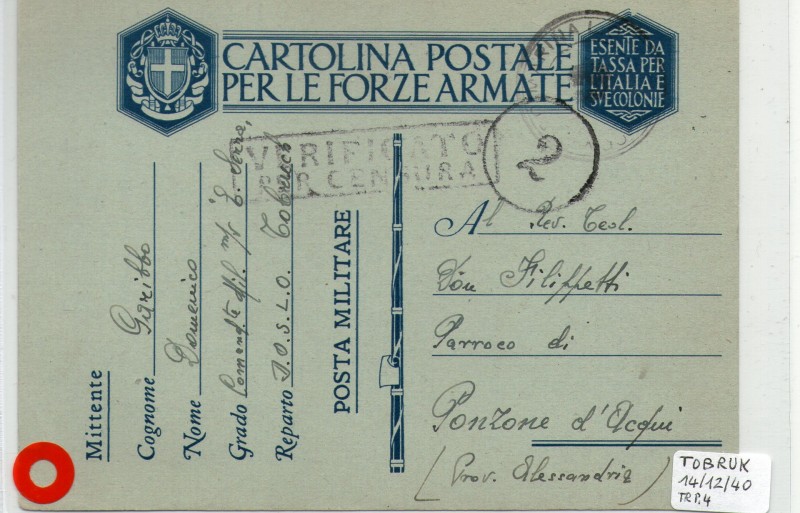 CARTOLINA POSTALE
PER LE FORZE ARMATE
ESENTE DA
TASSA PER
L'ITALIA E
SUE COLONIE
VERIFICATO
PER CENSURA
S
Al Rev. Teol.
Don Filippetti
Parroco di
Ponzone d'Acqui
(Prov. Alessandria)
POSTA MILITARE
Mittente
Cognome Garibbo
Nome Domenico
Grado Comand.te Mil. m/p
Reparto Tobruch
TOBRUK
14/12/40
TR P.4